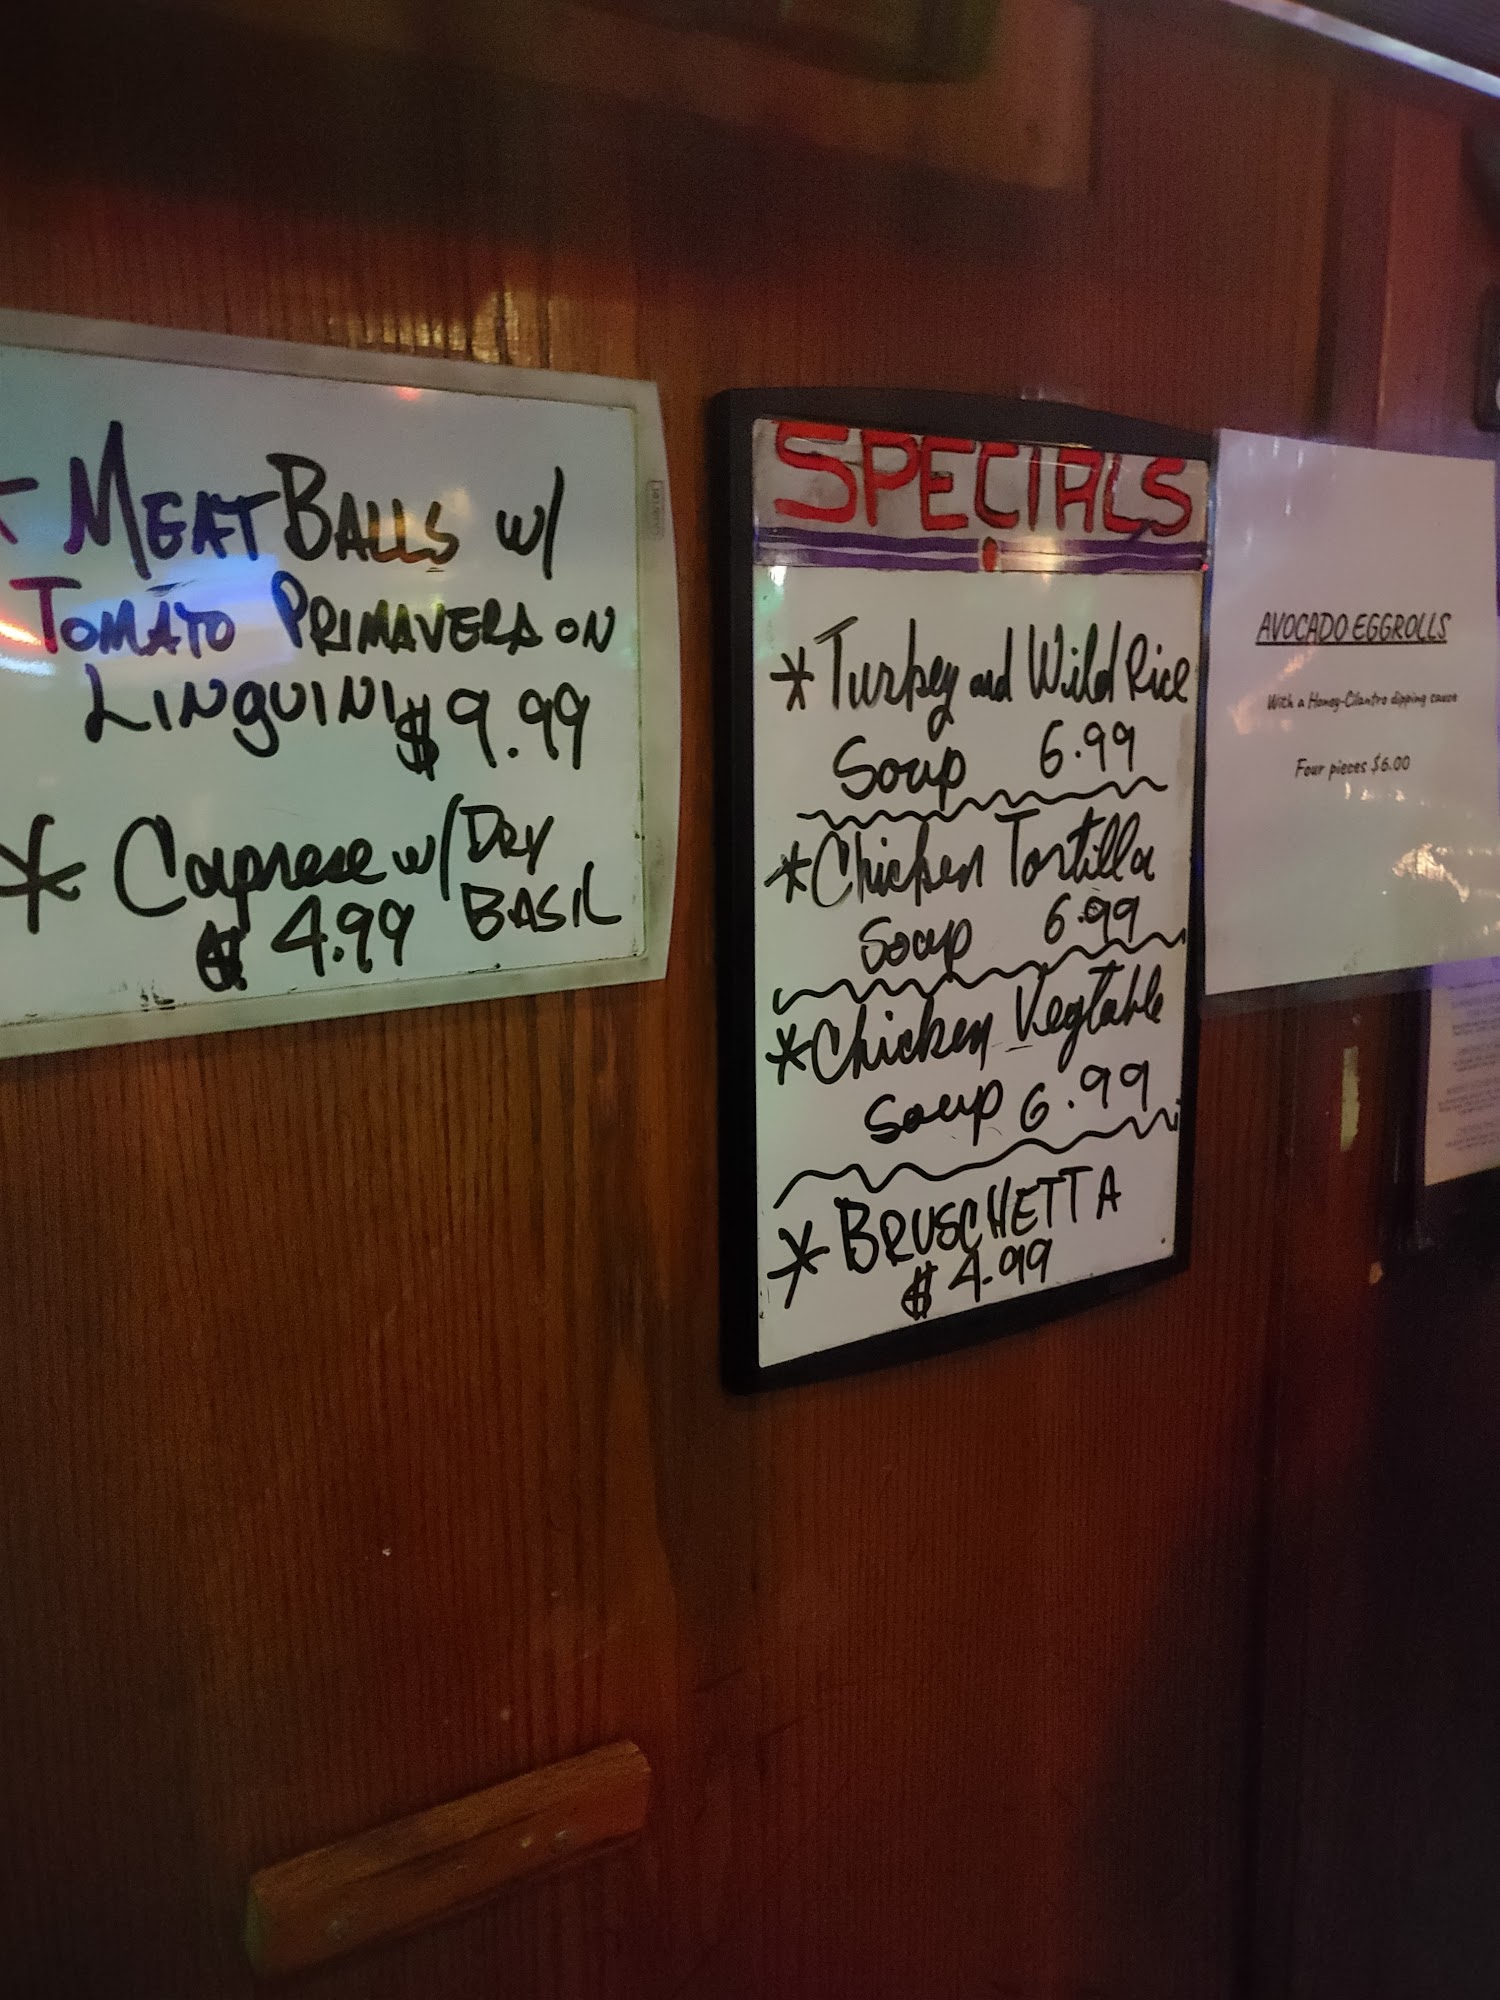 * MEATBALLS w/
TOMATO PRIMAVERA ON
LINGUINI $9.99
* Caprese w/ DRY
BASIL
$4.99
SPECIALS
* Turkey and Wild Rice
Soup 6.99
* Chicken Tortilla
Soup 6.99
* Chicken Vegtable
Soup 6.99
* BRUSCHETTA
$4.99
AVOCADO EGGROLLS
With a Honey-Cilantro dipping sauce
Four pieces $6.00